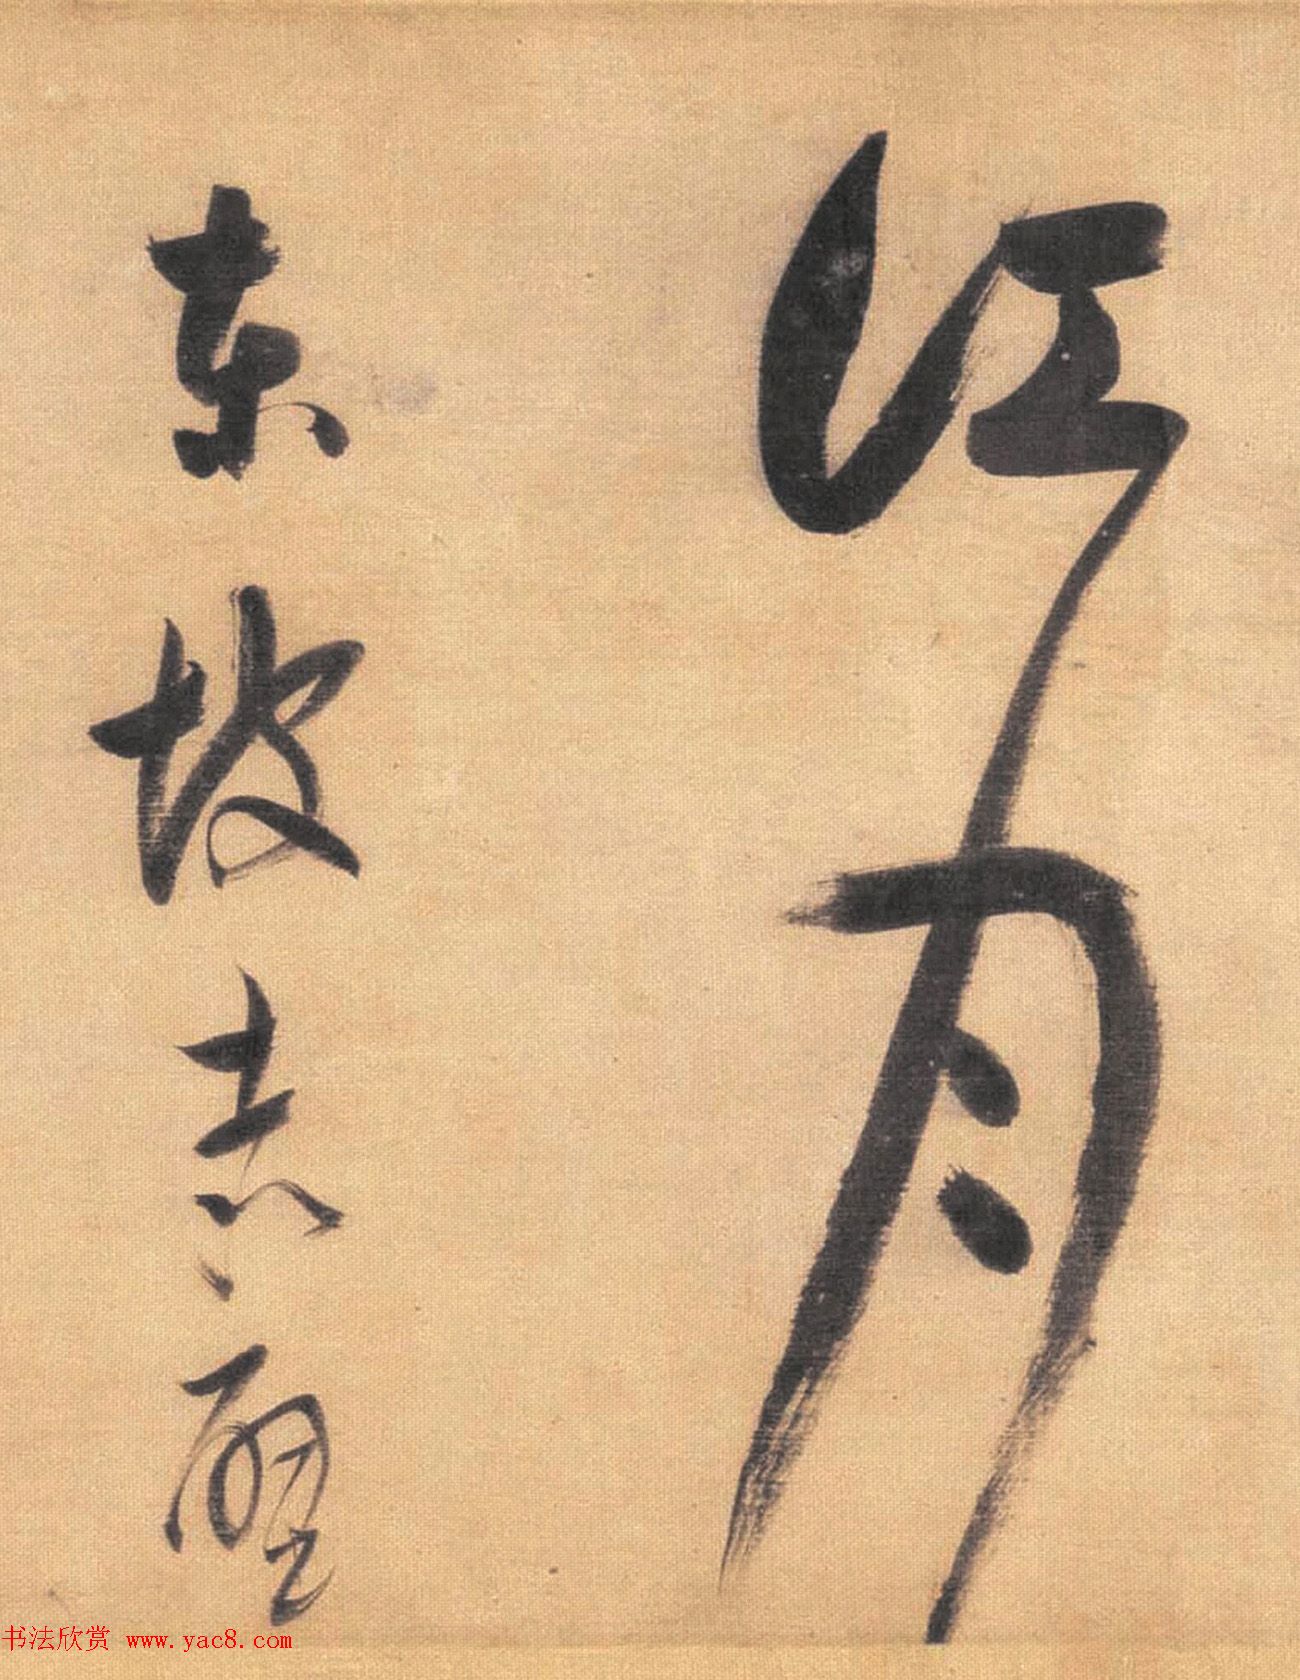 江月
东坡赤壁
书法欣赏 www.yac8.com